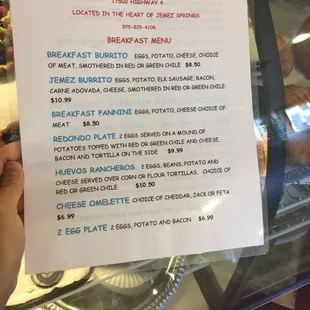 17502 HIGHWAY 4
LOCATED IN THE HEART OF JEMEZ SPRINGS
575-829-4108
BREAKFAST MENU
BREAKFAST BURRITO EGGS, POTATO, CHEESE, CHOICE
OF MEAT, SMOTHERED IN RED OR GREEN CHILE $8.50
JEMEZ BURRITO EGGS, POTATO, ELK SAUSAGE, BACON,
CARNE ADOVADA, CHEESE, SMOTHERED IN RED OR GREEN CHILE
$10.99
BREAKFAST PANNINI EGGS, POTATO, CHEESE CHOICE OF
MEAT. $8.50
REDONDO PLATE 2 EGGS SERVED ON A MOUND OF
POTATOES TOPPED WITH RED OR GREEN CHILE AND CHEESE.
BACON AND TORTILLA ON THE SIDE $9.99
HUEVOS RANCHEROS 2 EGGS, BEANS, POTATO AND
CHEESE SERVED OVER CORN OR FLOUR TORTILLAS. CHOICE OF
RED OR GREEN CHILE $10.50
CHEESE OMELETTE CHOICE OF CHEDDAR, JACK OR FETA
$6.99
2 EGG PLATE 2 EGGS, POTATO AND BACON $6.99